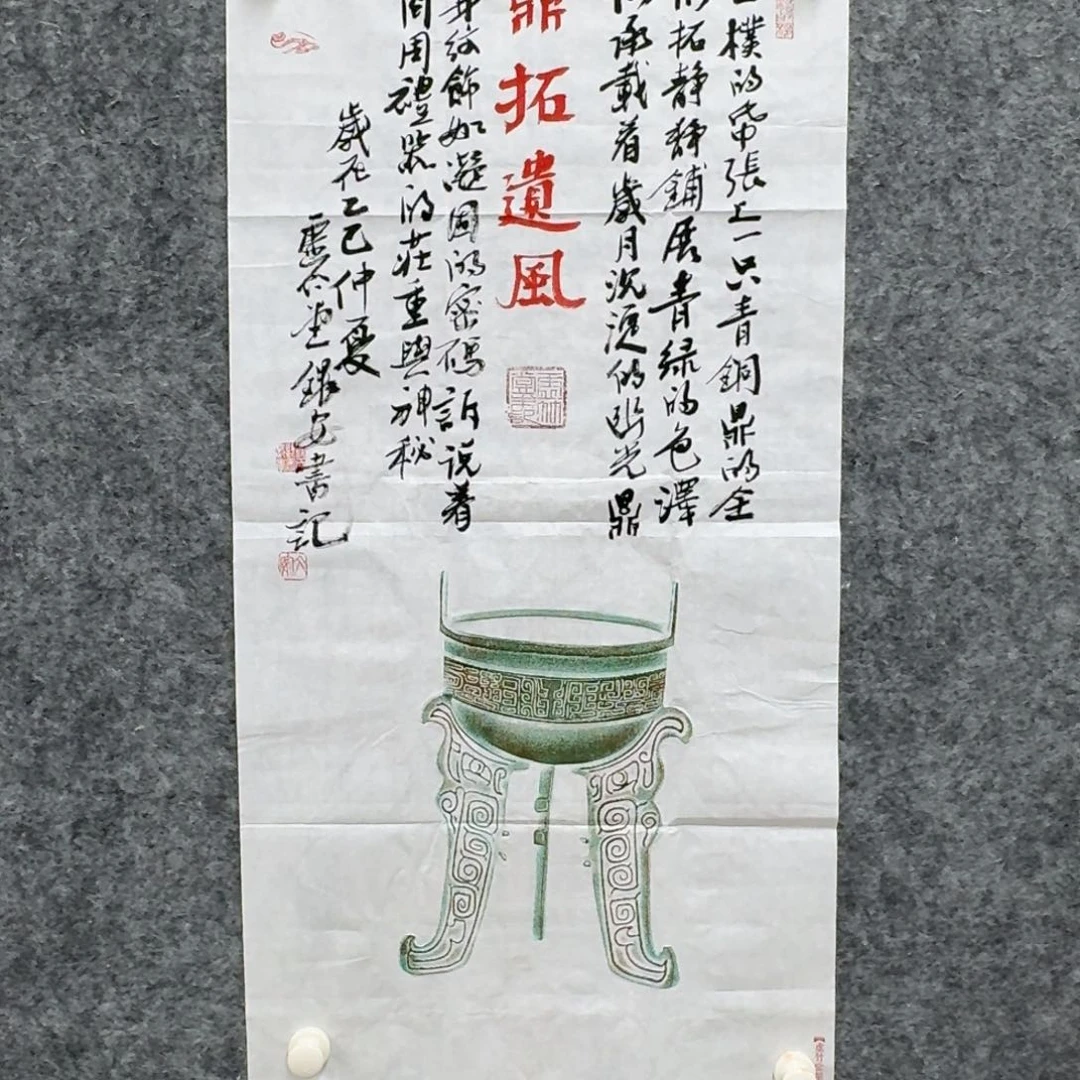 樸的帋張上一只青銅鼎的全
形拓静静鋪展青绿的色澤
承載着歲月沉澱的幽光鼎
鼎拓遺風
身紋飾如凝固的密碼訴说着
周禮器的莊重與神秘
歲在乙巳仲夏
虛竹堂銀安書記